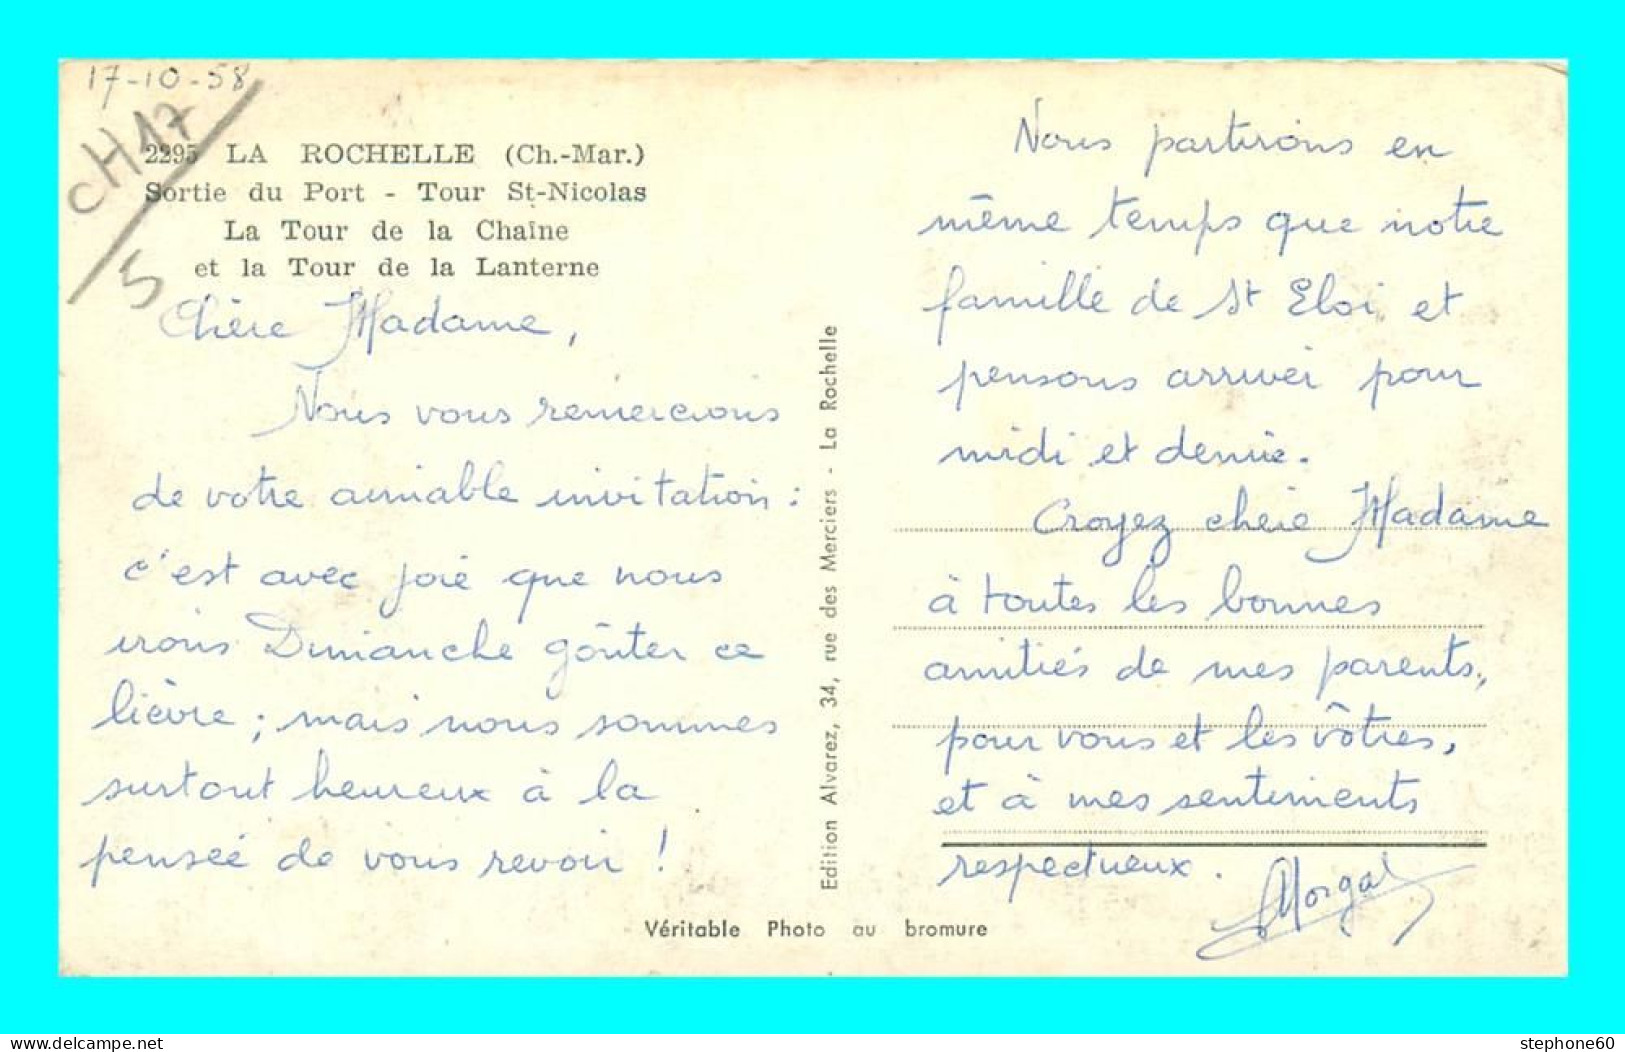 17-10-58
CH17
5
2295 LA ROCHELLE (Ch.-Mar.)
Sortie du Port - Tour St-Nicolas
La Tour de la Chaîne
et la Tour de la Lanterne
Chère Madame,
Nous vous remercions
de votre aimable invitation :
c'est avec joie que nous
irons Dimanche goûter ce
lièvre ; mais nous sommes
surtout heureux à la
pensée de vous revoir !
Edition Alvarez, 34, rue des Merciers - La Rochelle
Nous partirons en
même temps que notre
famille de St Eloi et
pensons arriver pour
midi et demie.
Croyez chère Madame
à toutes les bonnes
amitiés de mes parents,
pour vous et les vôtres,
et à mes sentiments
respectueux.
Véritable Photo au bromure
www.delcampe.net
stephone60